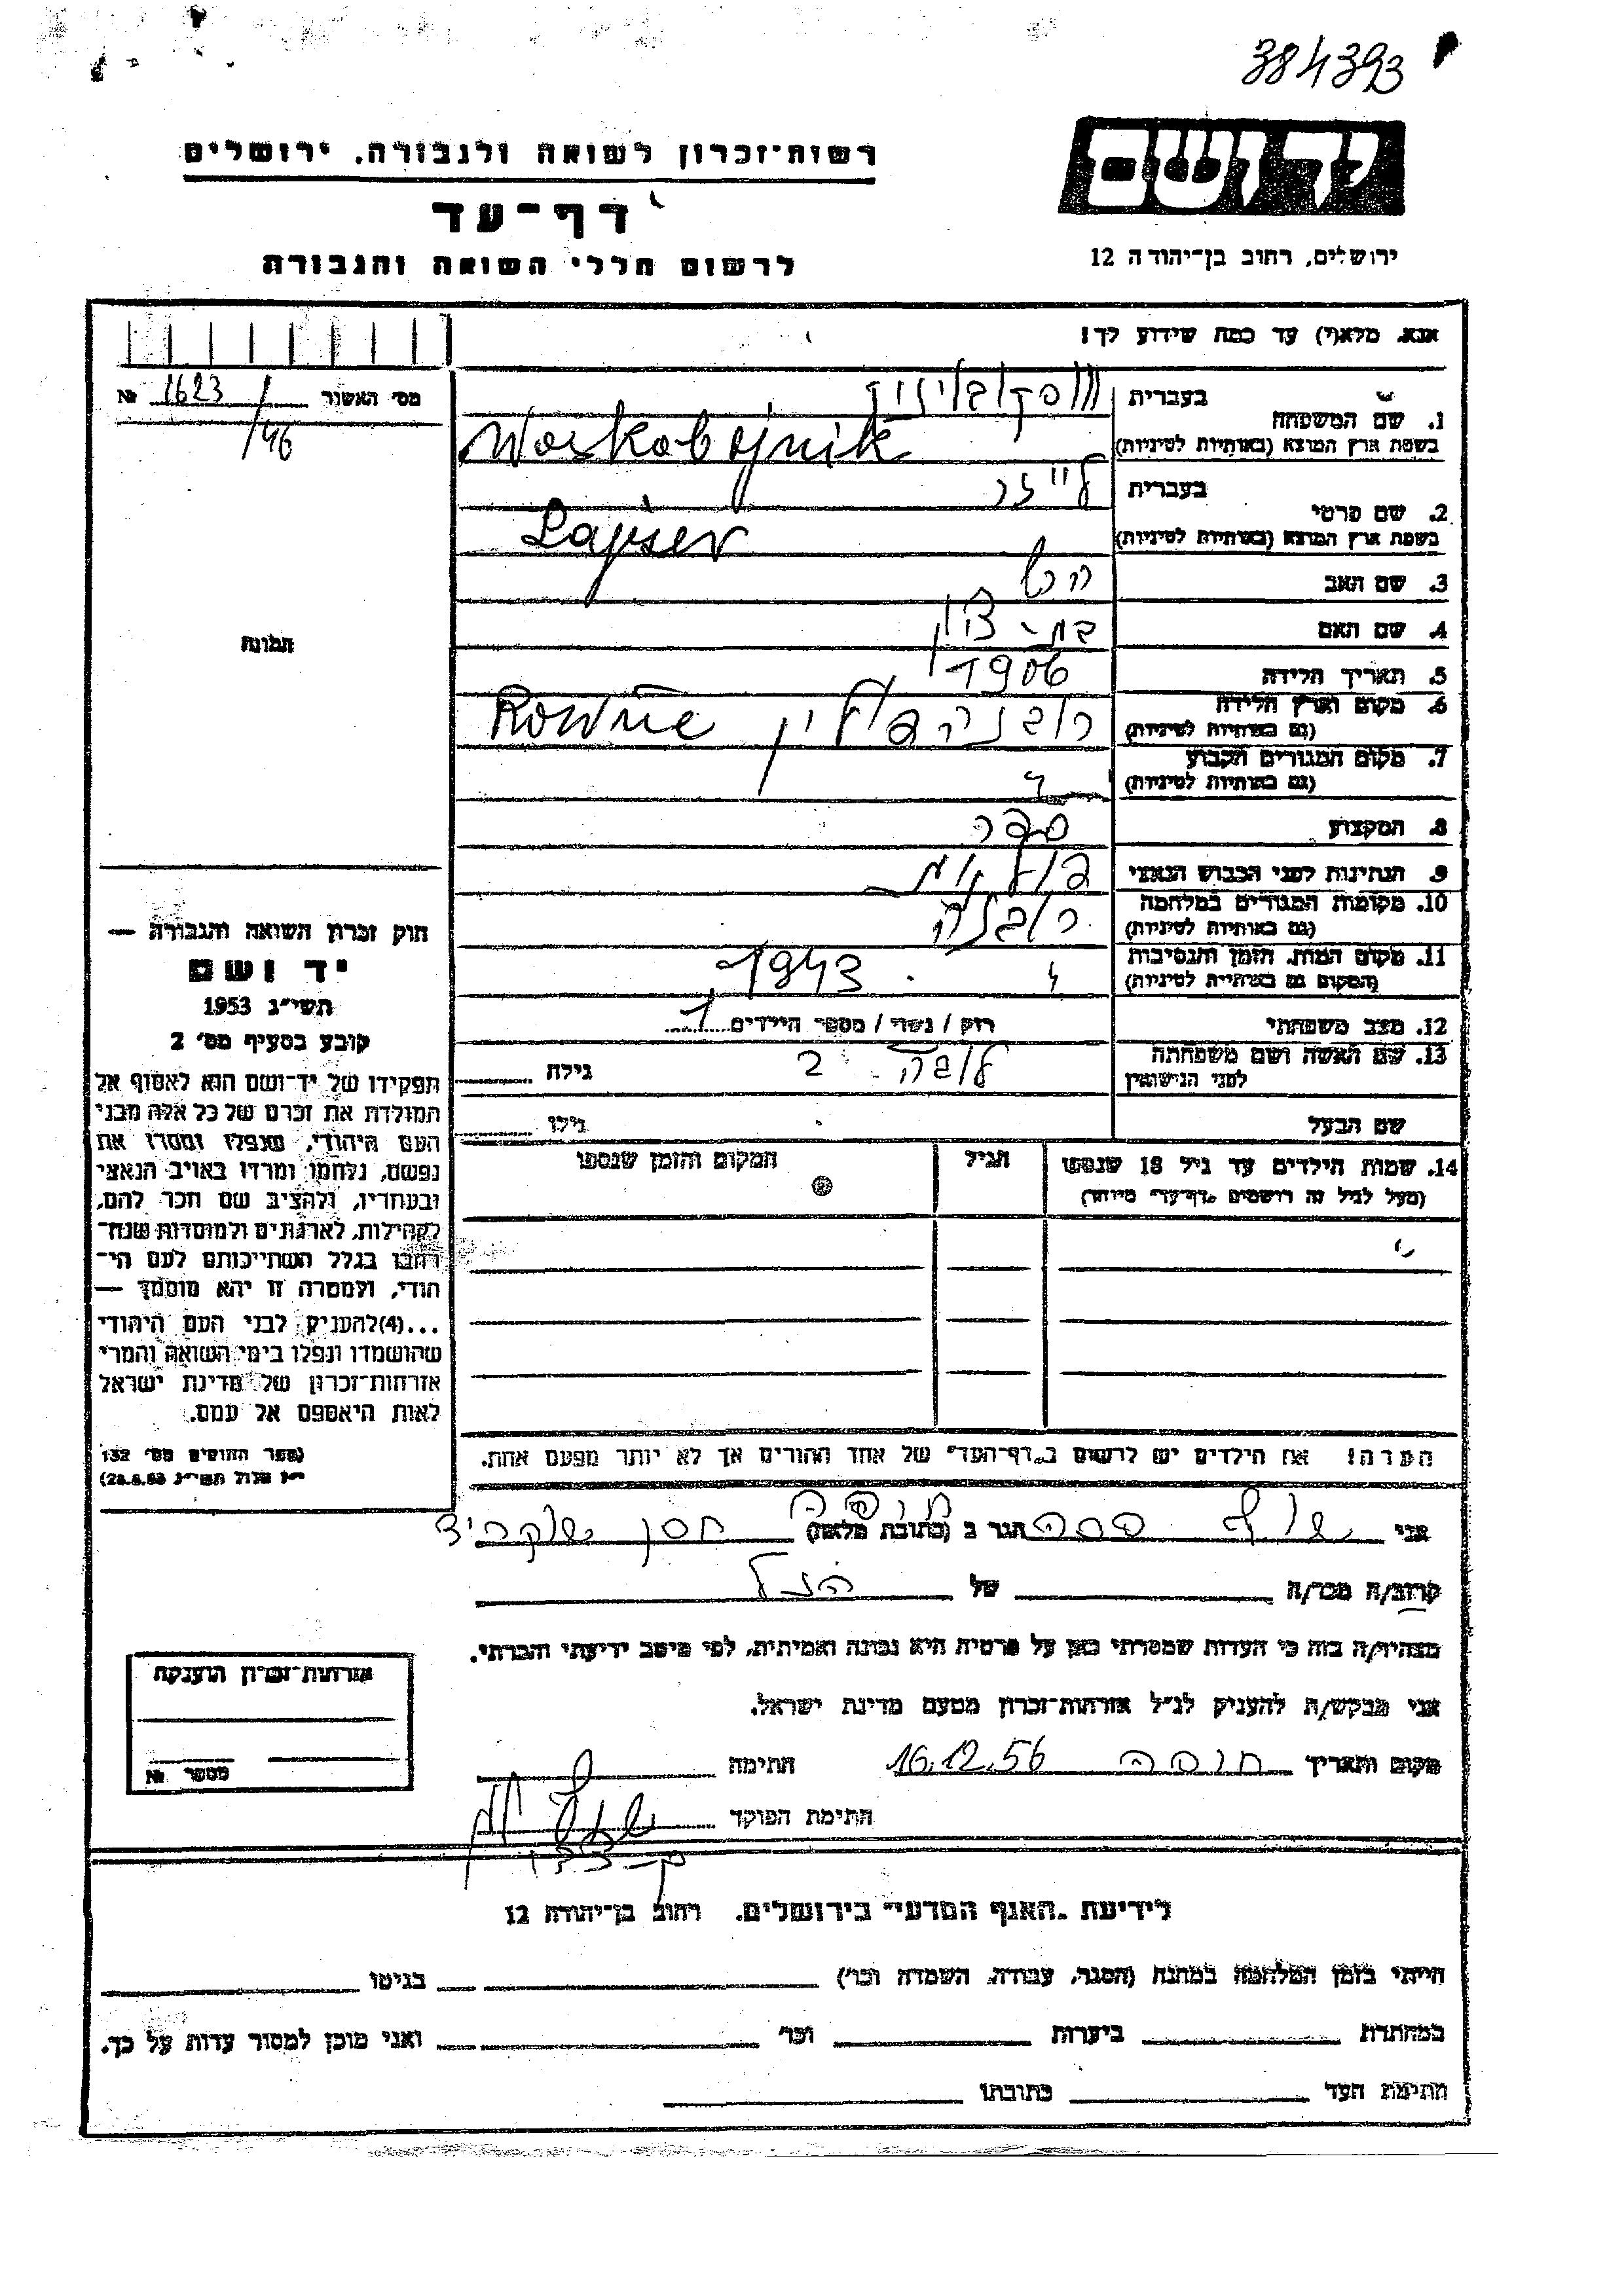 384393
יד ושם
רשות-זכרון לשואה ולגבורה, ירושלים
דף-עד
לרשום חללי השואה והגבורה
ירושלים, רחוב בן-יהודה 12
אנא, מלא(י) עד כמה שידוע לך!
מס׳ האשור 1623/46 №
1. שם המשפחה
בעברית
בשפת ארץ המוצא (באותיות לטיניות) Woskobojnik
2. שם פרטי
בעברית לייזר
בשפת ארץ המוצא (באותיות לטיניות) Lajser
3. שם האב הרש
4. שם האם בת-ציון
5. תאריך הלידה 1906
6. מקום וארץ הלידה
(גם באותיות לטיניות) רובנה פולין Rowne
7. מקום המגורים הקבוע
(גם באותיות לטיניות)
8. המקצוע ספר
9. הנתינות לפני הכבוש הנאצי פולנית
10. מקומות המגורים במלחמה
(גם באותיות לטיניות) רובנה
11. מקום המות, הזמן והנסיבות
(המקום גם באותיות לטיניות) 1943
12. מצב משפחתי רוק / נשוי / מספר הילדים 1
13. שם האשה ושם משפחתה
לפני הנישואין גילה
שם הבעל גילו
14. שמות הילדים עד גיל 18 שנספו
(מעל לגיל זה רושמים "דף-עד" מיוחד)
הגיל
המקום והזמן שנספו
הערה! את הילדים יש לרשום ב"דף-העד" של אחד ההורים אך לא יותר מפעם אחת.
תמונה
חוק זכרון השואה והגבורה —
יד ושם
תשי״ג 1953
קובע בסעיף מס׳ 2
תפקידו של יד-ושם הוא לאסוף אל
המולדת את זכרם של כל אלה מבני
העם היהודי, שנפלו ומסרו את
נפשם, נלחמו ומרדו באויב הנאצי
ובעוזריו, ולהציב שם וזכר להם,
לקהילות, לארגונים ולמוסדות שנח-
רבו בגלל השתייכותם לעם הי-
הודי, ולמטרה זו יהא מוסמך —
...(4)להעניק לבני העם היהודי
שהושמדו ונפלו בימי השואה והמרי
אזרחות-זכרון של מדינת ישראל
לאות היאספם אל עמם.
(ספר החוקים מס׳ 132
י״ז אלול תשי״ג 28.8.53)
אני הגר ב (כתובת מלאה) חיפה
קרוב/ה מכר/ה של הנ״ל
מצהיר/ה בזה כי העדות שמסרתי כאן על פרטיה היא נכונה ואמיתית, לפי מיטב ידיעתי והכרתי.
אני מבקש/ת להעניק לנ״ל אזרחות-זכרון מטעם מדינת ישראל.
מקום ותאריך חיפה 16.12.56 חתימה
חתימת הפוקד
אזרחות-זכרון הוענקה
מספר №
לידיעת "האגף המדעי" בירושלים, רחוב בן-יהודה 12
הייתי בזמן המלחמה במחנה (הסגר, עבודה, השמדה וכו׳) בגיטו
במחתרת ביערות וכו׳ ואני מוכן למסור עדות על כך.
חתימת העד כתובתו